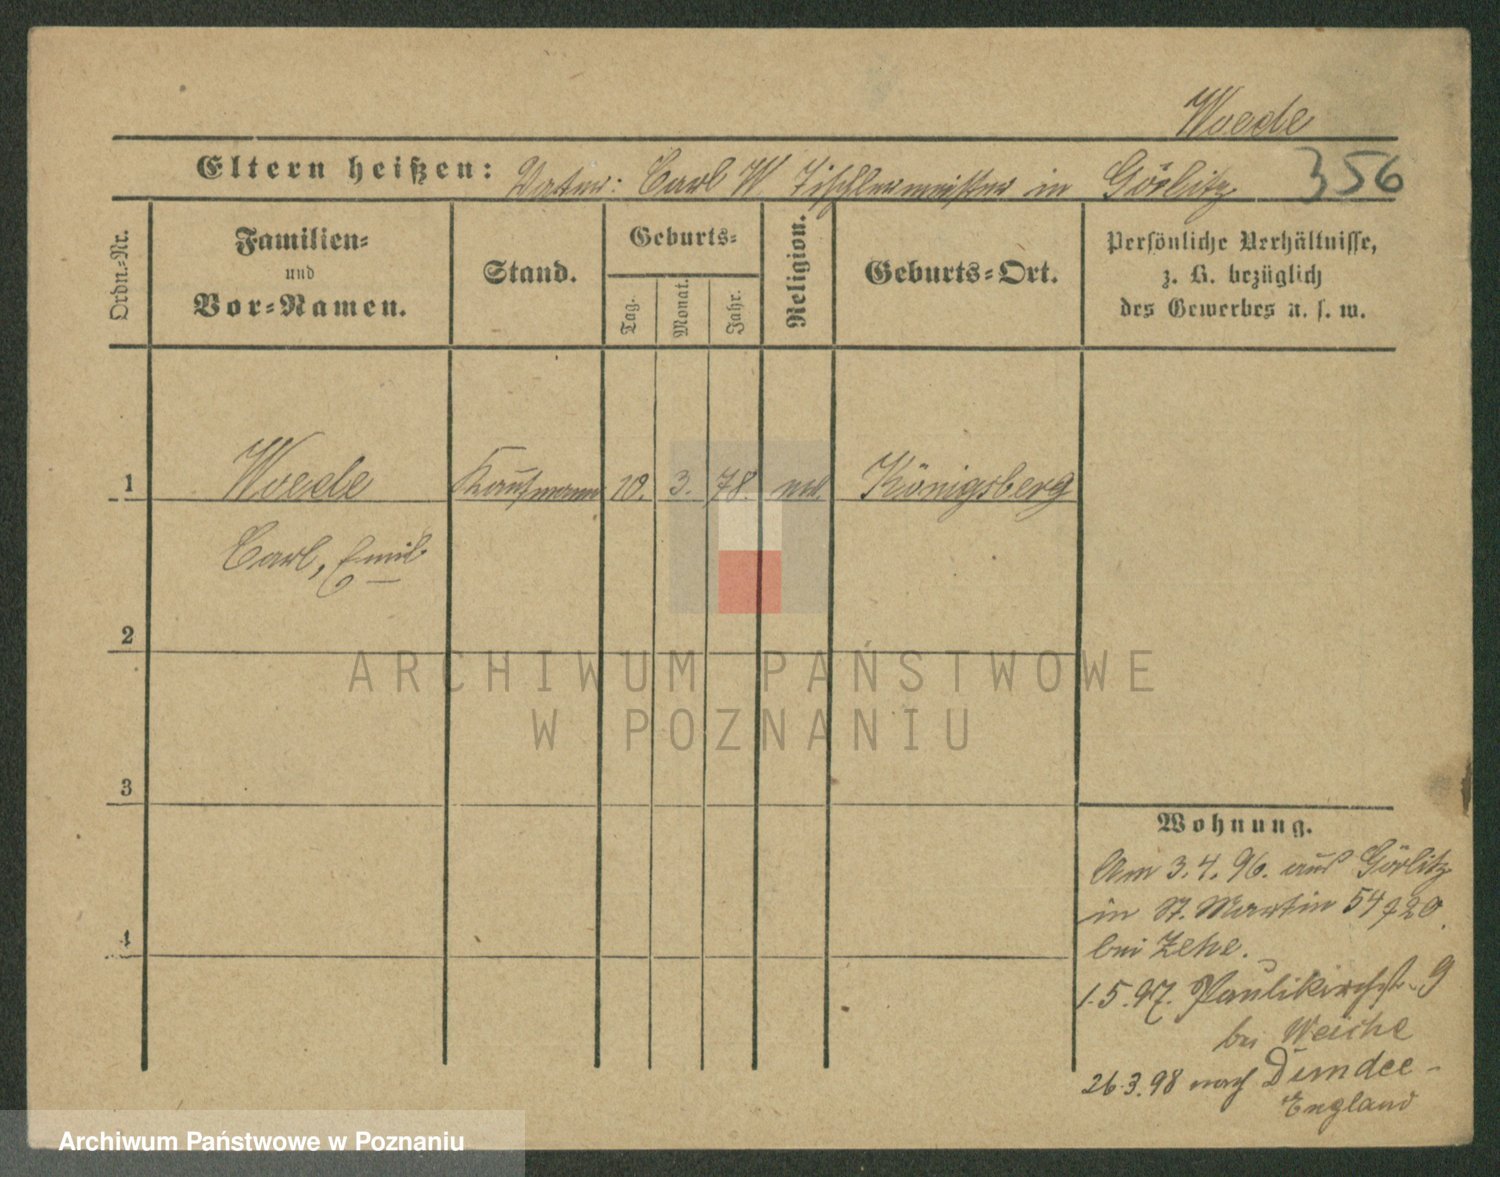 Woede
Eltern heißen: Vater: Carl W Tischlermeister in Görlitz 356
Ordn.-Nr.
Familien-
und
Vor-Namen.
Stand.
Geburts-
Tag.
Monat.
Jahr.
Religion.
Geburts-Ort.
Persönliche Verhältnisse,
z. B. bezüglich
des Gewerbes u. s. w.
1 Woede Kaufmann 10. 3. 78. Königsberg
Carl, Emil
2
3
4
Wohnung.
Am 3.4.96. aus Görlitz
in St. Martin 54
bei Zehe.
1.5.97. Paulikirchst. 9
bei Weiche
26.3.98 nach Dundee -
England
ARCHIWUM PAŃSTWOWE
W POZNANIU
Archiwum Państwowe w Poznaniu